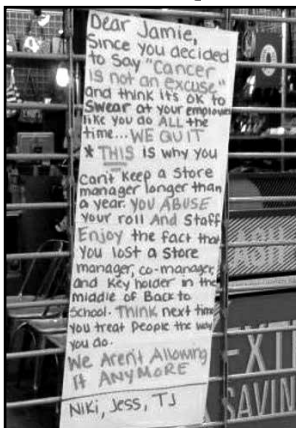 Dear Jamie,
Since you decided
to Say "Cancer
is not an excuse"
and think its ok to
Swear at your employees
like you do ALL the
time... WE QUIT
* THIS is why you
can't keep a store
manager longer than
a year. YOU ABUSE
your roll And Staff
Enjoy the fact that
you lost a store
manager, co-manager,
and key holder in the
middle of Back to
School. THINK next time
you treat People the way
you do.
We Aren't Allowing
It ANYMORE
Niki, Jess, TJ
EXT
SAVIN